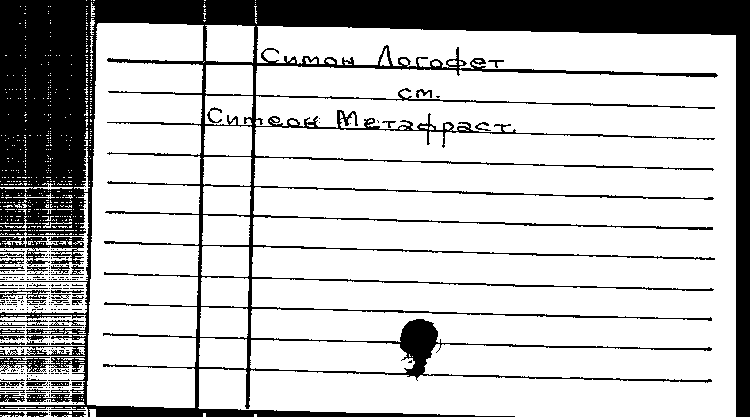 Симон Логофет
см.
Симеон Метафраст.